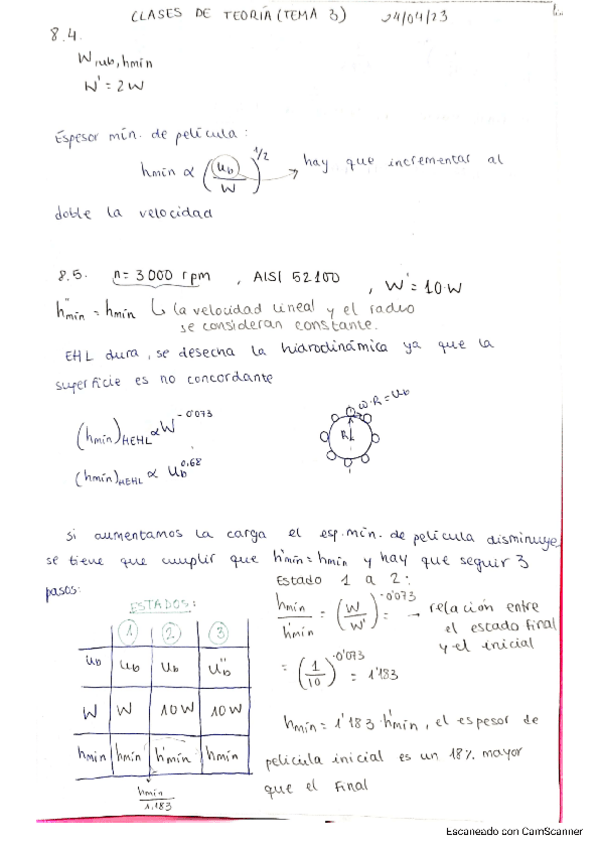 CLASES DE TEORÍA (TEMA 3) 24/04/23
8.4.
W, ub, hmin
W' = 2W
Espesor mín. de película:
hmin ∝ (ub/W)^1/2 → hay que incrementar al
doble la velocidad
8.5. n = 3000 rpm, AISI 52100, W' = 10·W
h''min = hmin ↳ la velocidad lineal y el radio
se consideran constante.
EHL dura, se desecha la hidrodinámica ya que la
superficie es no concordante
(hmin)HEHL ∝ W^-0'073
ω·R = Ub
R
(hmin)HEHL ∝ Ub^0.68
Si aumentamos la carga el esp. mín. de película disminuye,
se tiene que cumplir que h''min = hmin y hay que seguir 3
pasos:
Estado 1 a 2:
ESTADOS:
1 2 3
ub ub ub u''b
W W 10W 10W
hmin hmin h'min hmin
hmin/1.183
hmin/h'min = (W/W')^-0'073 = → relación entre
el estado final
y el inicial
= (1/10)^-0'073 = 1'183
hmin = 1'183·h'min, el espesor de
película inicial es un 18% mayor
que el final
Escaneado con CamScanner